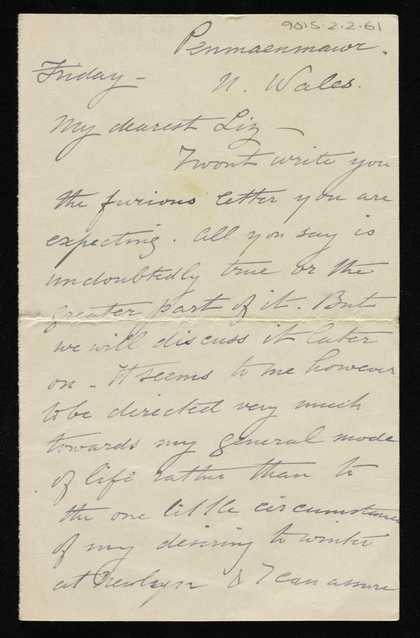 9015.2.2.61
Penmaenmawr.
Friday - N. Wales.
My dearest Liz -
I wont write you
the furious letter you are
expecting. All you say is
undoubtedly true or the
greater part of it. But
we will discuss it later
on - It seems to me however
to be directed very much
towards my general mode
of life rather than to
the one little circumstance
of my desiring to winter
at Newlyn & I can assure